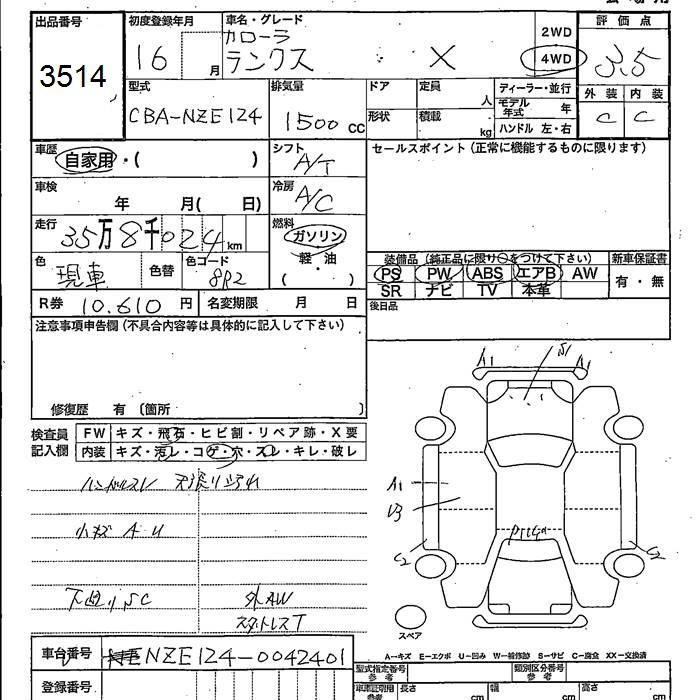 出品番号 初度登録年月 車名・グレード 評価点
3514 16 月 カローラ
ランクス X 2WD 4WD 3.5
型式 排気量 ドア 定員 人 ディーラー・並行 外装 内装
CBA-NZE124 1500 cc 形状 積載 kg モデル年式 年 C C
ハンドル 左・右
車歴 自家用・( ) シフト A/T セールスポイント(正常に機能するものに限ります)
車検 年 月( 日) 冷房 A/C
走行 35万8千024km 燃料 ガソリン
軽・油
( )
色 現車 色替 色コード 8R2
装備品(純正品に限り○をつけて下さい) 新車保証書
PS PW ABS エアB AW 有・無
SR ナビ TV 本革
R券 10.610 円 名変期限 月 日 後日品
注意事項申告欄(不具合内容等は具体的に記入して下さい)
修復歴 有 〔箇所 〕
検査員 FW キズ・飛石・ヒビ割・リペア跡・X要
記入欄 内装 キズ・汚レ・コゲ・穴・スレ・キレ・破レ
ハンドルスレ 天張り汚れ
小キズ A U
下廻り SC 外AW
スタットレスT
A1 S1 A1
A1
U3
C2 C2
スペア
A-キズ E-エクボ U-凹み W-補修跡 S-サビ C-腐食 XX-交換済
車台番号 NZE124-0042401
登録番号
型式指定番号 参考 類別区分番号 参考
車庫証明用 参考 長さ cm 幅 cm 高さ cm